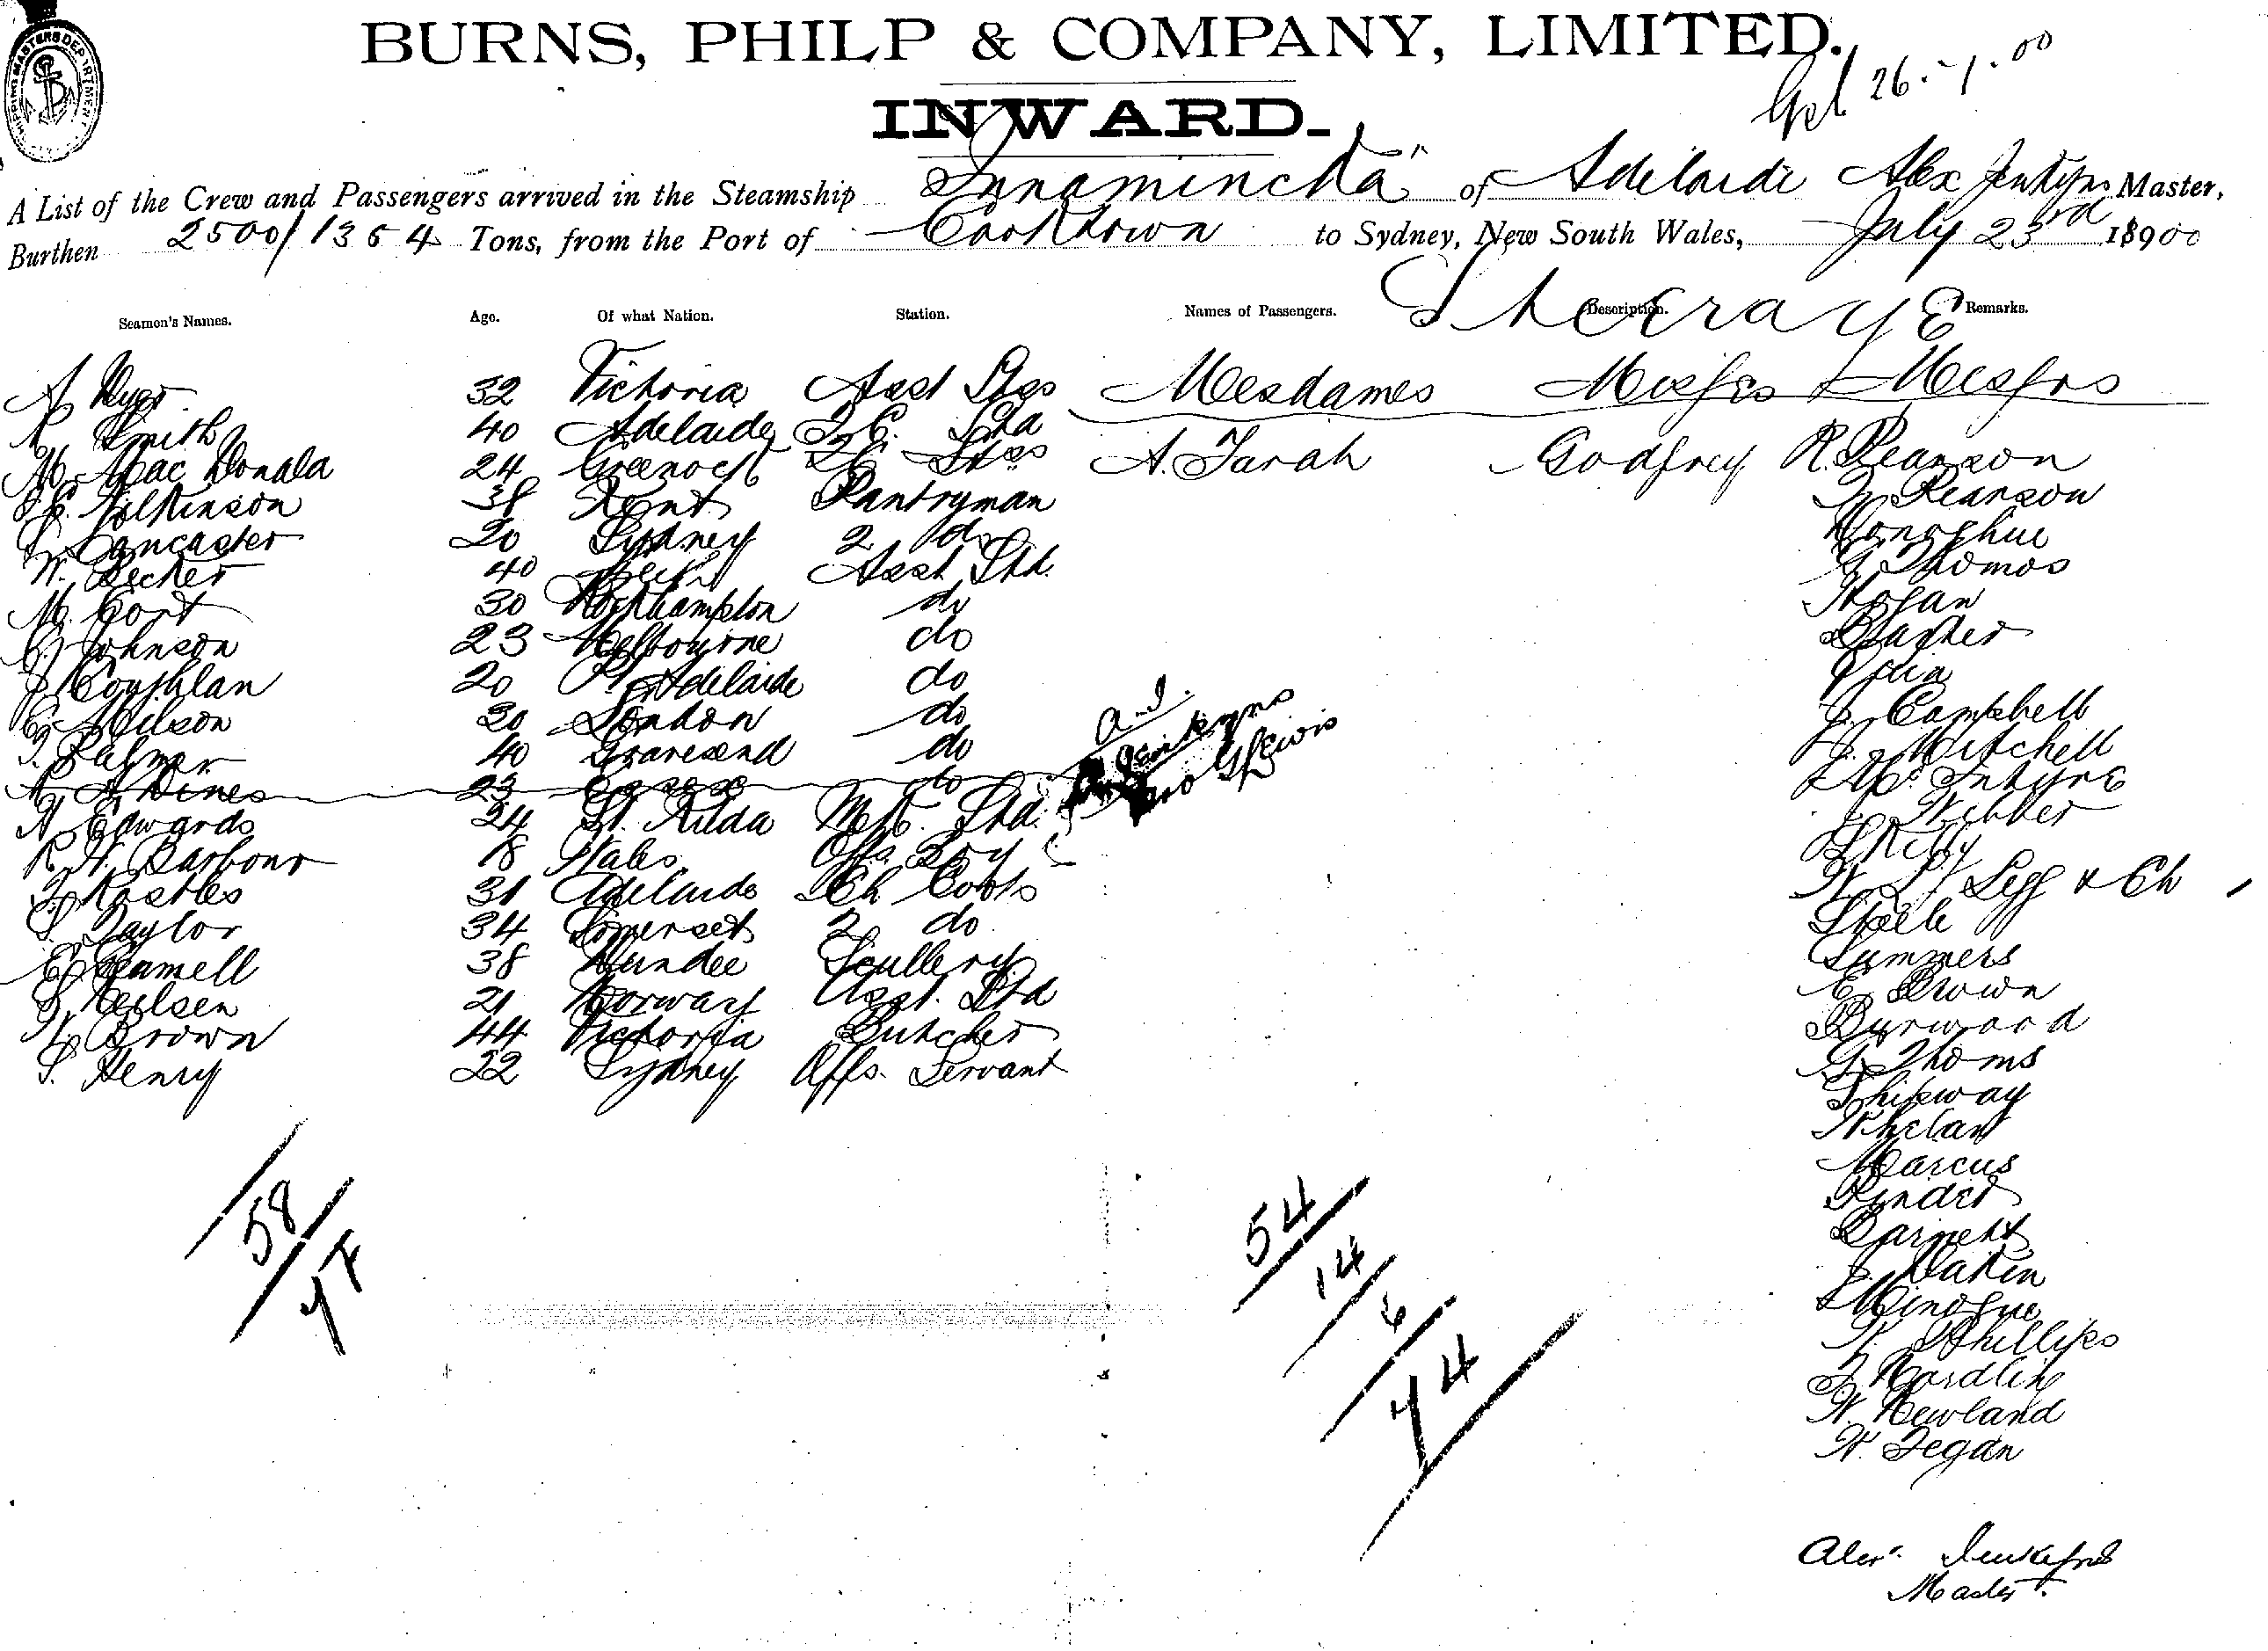 BURNS, PHILP & COMPANY, LIMITED.
26.-7.00
INWARD.
SHIPPING MASTERS DEPARTMENT
A List of the Crew and Passengers arrived in the Steamship "Innamincka" of Adelaide Alex Jenkyns Master,
Burthen 2500/1354 Tons, from the Port of Cooktown to Sydney, New South Wales, July 23rd 18900
Seamen's Names. Age. Of what Nation. Station. Names of Passengers. Description. Remarks.
Steerage
A 32 Victoria Asst Stss Mesdames Misses & Messrs
Smith 40 Adelaide 2C. Std
M. Mac Donald 24 Greenock 2C Stss A. Farah Godfrey R. Pearson
Wilkinson 38 Kent Pantryman Pearson
Lancaster 20 Sydney 2 do Donoghue
W. Becker 40 Asst Std. G Thomas
M. Cort 30 Rockhampton do Hogan
Johnson 23 Melbourne do
J Coughlan 20 Pt Adelaide do
Wilson 20 London do J. Campbell
Palmer 40 Gravesend do J. Mitchell
A Dines 23 do McIntyre
Edwards 24 St. Kilda Std. Webber
R. W. Barbour 18 Wales Boy
31 Adelaide Ch Cook W Legg & Ch
S. Taylor 34 Somerset 2 do Steele
E Gamell 38 Dundee Scullery Summers
Neilsen 21 Norway Asst. Std E Brown
Brown 44 Victoria Butcher Burwood
S. Henry 22 Sydney Offs. Servant G Thoms
Shipway
Whelan
Marcus
Pinder
Barnett
Dakin
Minogue
Phillips
W. Newland
W. Fegan
58
77
54
14
6
74
Alexr. Jenkyns
Master.